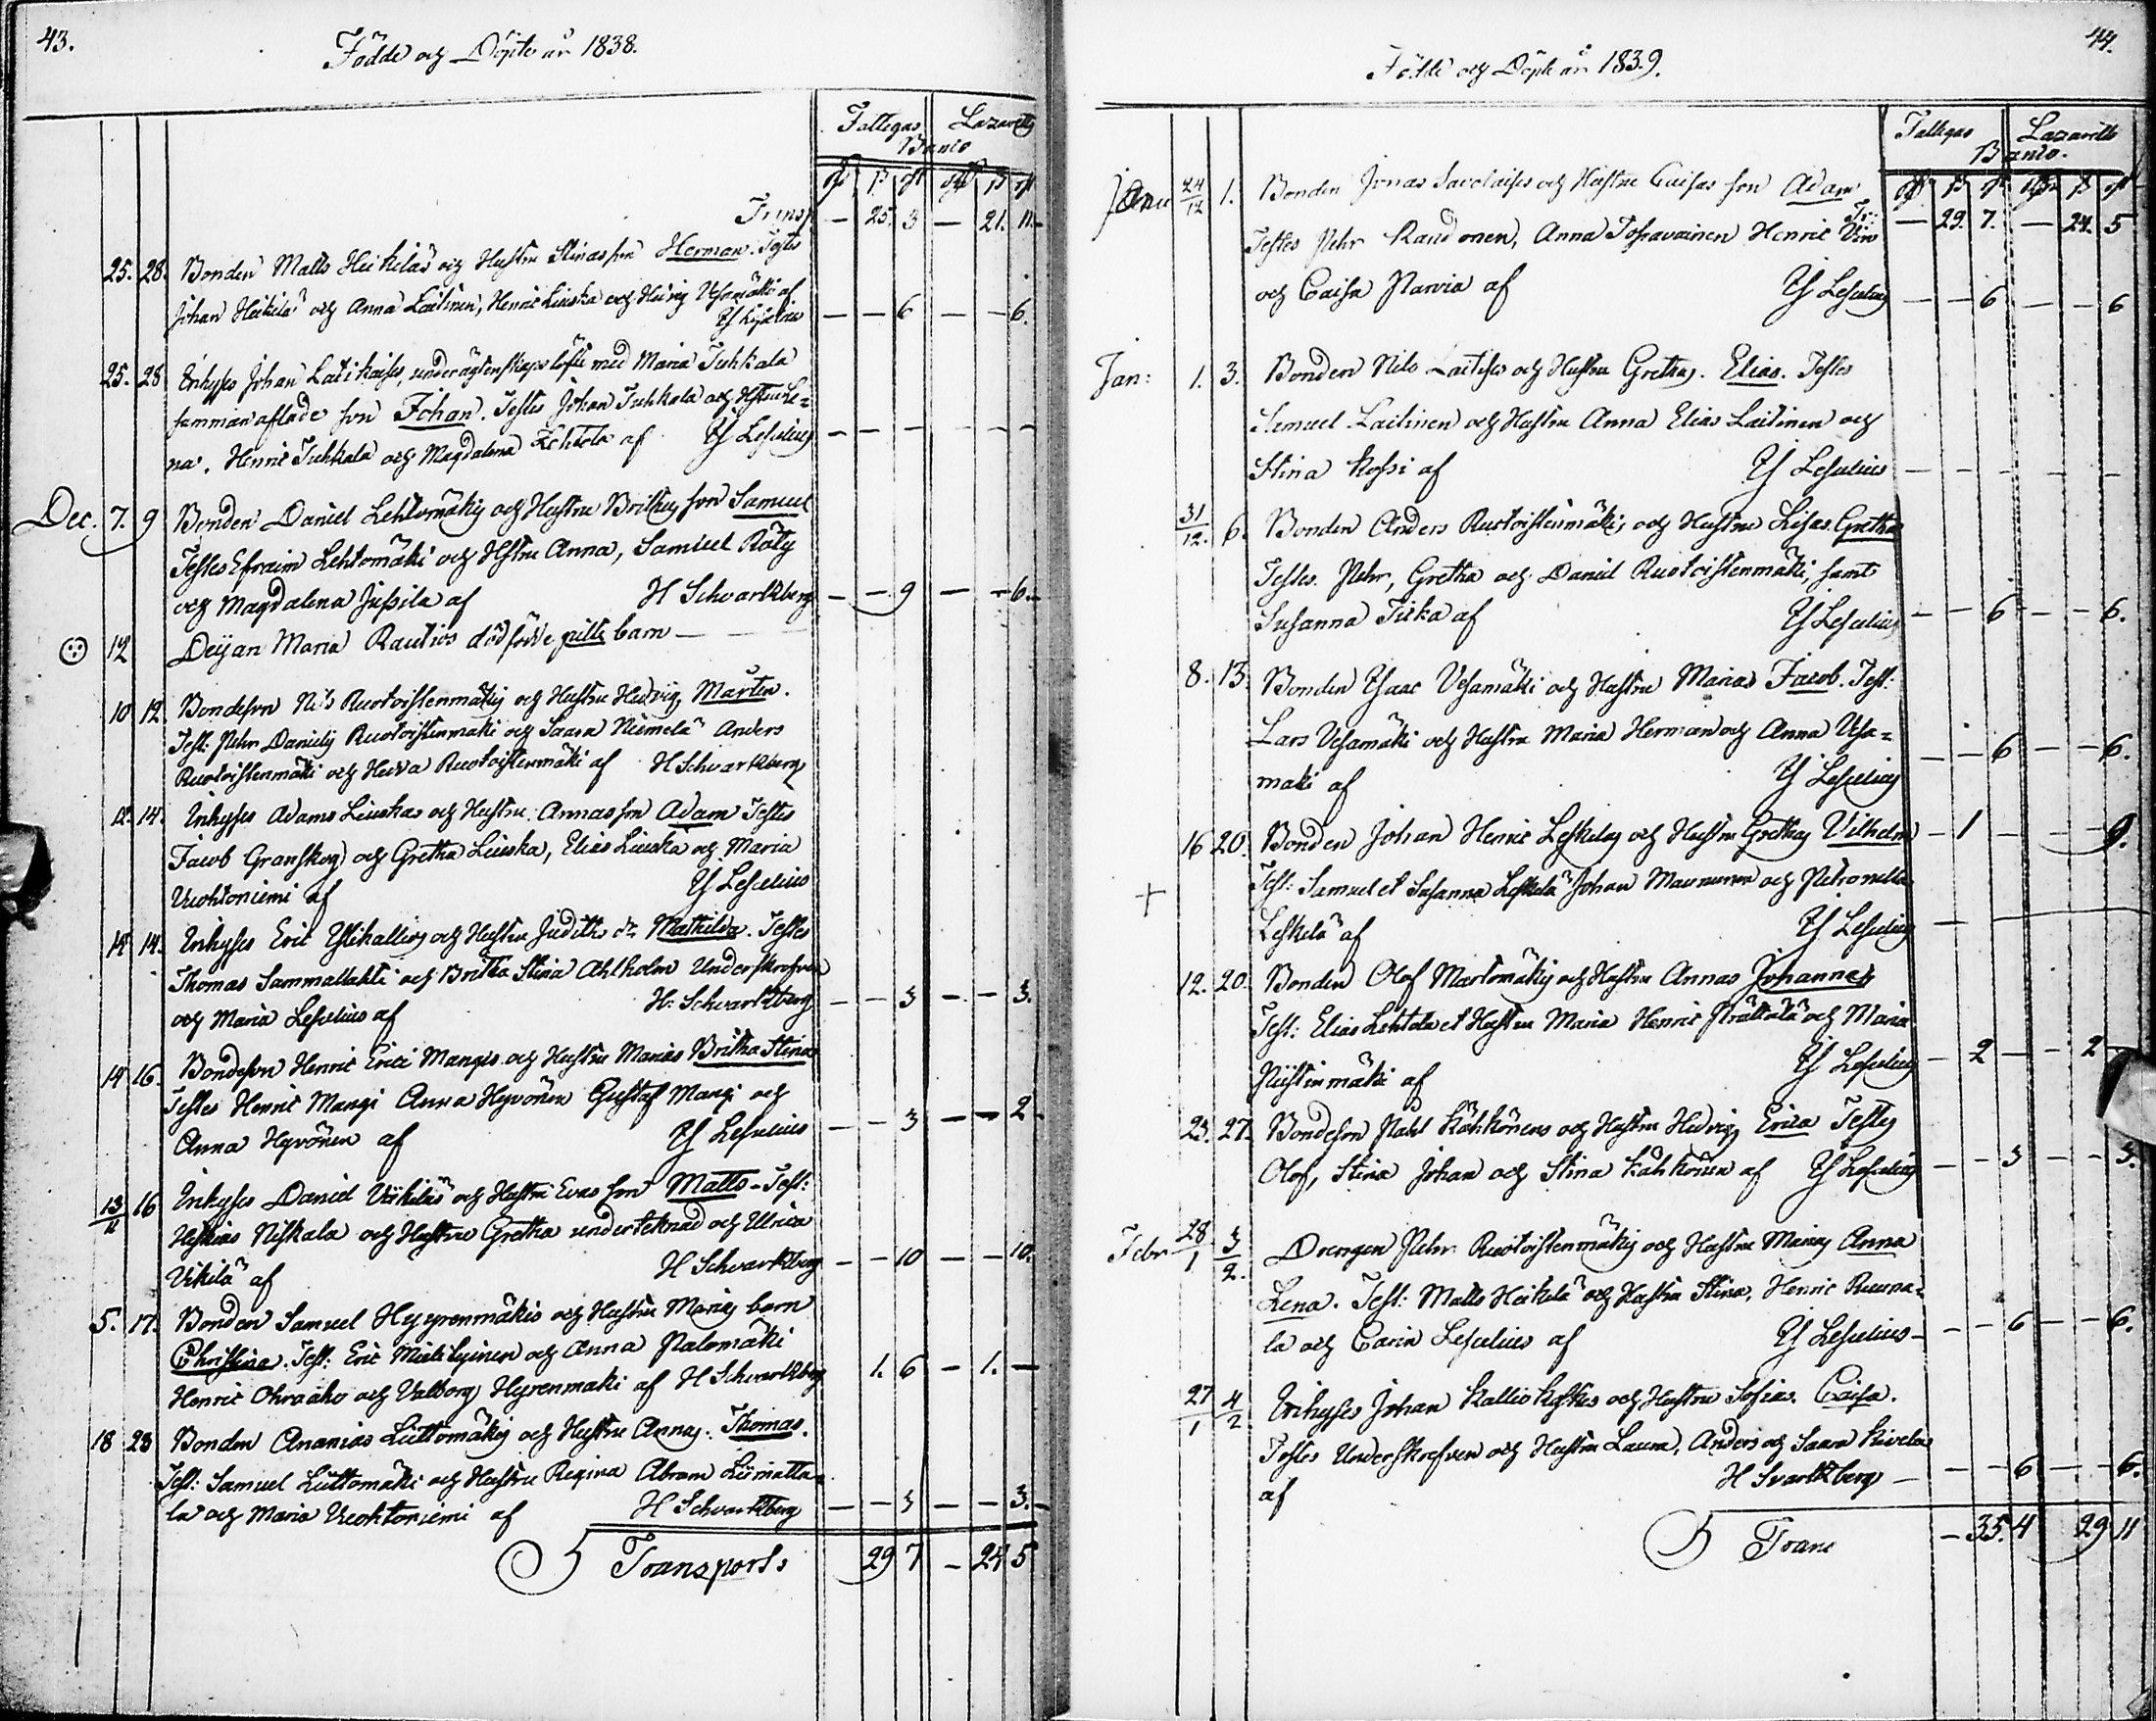 43.
Födde och Döpte år 1838.
Fattigas Lazaretts
Banco
Transp — 25. 3 — 21. 11.
25. 28. Bonden Matts Heikiläs och Hustru Stinas son Herman. Testes
Johan Heikilä och Anna Laitinen, Henric Liuska och Hedvig Vesamäki af
— — 6 — — 6.
25. 28 Inhyses Johan Laitikaises, under ägtenskaps löfte med Maria Tuhkala
samman aflade son Johan. Testes Johan Tuhkala och Hstru Le=
na, Henric Tuhkala och Magdalena Lehtola af Is Lescelius — — — — — —
Dec. 7. 9 Bonden Daniel Lehtomäkis och Hustru Brithas son Samuel
Testes Efraim Lehtomäki och Hstru Anna, Samuel Räty
och Magdalena Jussila af H Schvartzberg — — 9 — — 6.
12 Deijan Maria Rautios dödfödde barn —
10 12 Bondeson Nils Ruotoistenmäkis och Hustru Hedvigs Mårten.
Test: Pehr Daniels Ruotoistenmäki och Saara Niemelä Anders
Ruotoistenmäki och Hedva Ruotoistenmäki af H Schvartzberg
12. 14. Inhyses Adams Liuskas och Hustru Annas son Adam Testes
Jacob Granskog och Gretha Liuska, Elias Liuska och Maria
Vuohtoniemi af Is Lescelius
14 14. Inhyses Eric Ylikallios och Hustru Judiths dr Mathilda. Testes
Thomas Sammallahti och Britha Stina Ahlholm Underskrefven
och Maria Lescelius af H. Schvartzberg — — 3 — — 3.
14 16. Bondeson Henric Erici Mangis och Hustru Marias Britha Stina
Testes Henric Mangi Anna Hyvönen Gustaf Mangi och
Anna Hyvönen af Is Lescelius — — 3 — — 2
13/11 16 Inhyses Daniel Vikiläs och Hustru Evas son Matts. Test:
Heskias Niskala och Hustru Gretha undertecknad och Ulrica
Vikilä af H Schvartzberg — — 10 — — 10.
5. 17. Bonden Samuel Hyyrenmäkis och Hustru Marias barn
Christina. Test: Eric Mielityinen och Anna Palomäki
Henric Ohraaho och Valborg Hyrenmäki af H Schvartzberg 1. 6 — 1. —
18 23 Bonden Ananias Liittomäkis och Hustru Annas: Thomas.
Test: Samuel Liittomäki och Hustru Regina Abram Liimatta=
la och Maria Vuohtoniemi af H Schvartzberg — — 3 — — 3.
Transports 29 7 — 24 5
44.
Födde och Döpte år 1839.
Fattigas Lazaretts
Banco.
Janu 24/12 1. Bonden Jonas Savolaises och Hustru Caisas son Adam
Tr: — 29. 7. — 24. 5
Testes Pehr Raudonen, Anna Tossavainen Henric
och Caisa Parvia af Is Lescelius — — 6 — — 6
Jan: 1. 3. Bonden Nils Laitises och Hustru Grethas. Elias. Testes
Samuel Laitinen och Hustru Anna Elias Laitinen och
Stina Rossi af Is Lescelius — — — — — —
31/12. 6. Bonden Anders Ruotoistenmäkis och Hustru Lisas. Gretha
Testes. Pehr, Gretha och Daniel Ruotoistenmäki, samt
Susanna Tiska af Is Lescelius — — 6 — — 6.
8. 13. Bonden Isaac Vesamäki och Hustru Marias Jacob. Test:
Lars Vesamäki och Hustru Maria Herman och Anna Vesa=
mäki af Is Lescelius — — 6 — — 6.
16 20. Bonden Johan Henric Leskeläs och Hustru Grethas Vilhelm — 1 — — — 9.
Test: Samuel et Susanna Leskelä Johan Maununen och Petronella
Leskelä af Is Lescelius —
12. 20. Bonden Olof Martomäkis och Hustru Annas Johannes
Test: Elias Lehtola et Hustru Maria Henric Prättälä och Maria
Piistinmäki af Is Lescelius — 2 — — 2 —
23. 27. Bondeson Påhl Kähkönens och Hustru Hedvigs Erica Testes
Olof, Stina Johan och Stina Kähkönen af Is Lescelius — — 3 — — 3.
Febr 28/1 3/2. Drengen Pehr Ruotoistenmäkis och Hustru Marias Anna
Lena. Test: Matts Heikelä och Hustru Stina, Henric Ruuna=
la och Carin Lescelius af Is Lescelius — — — 6 — — 6.
27/1 4/2 Inhyses Johan Kalliokoskes och Hustru Sofias. Caisa.
Testes Underskrefven och Hustru Laura, Anders och Saara Kivelä
af H Svartzberg — — — 6 — — 6.
Trans — 35. 4 29 11